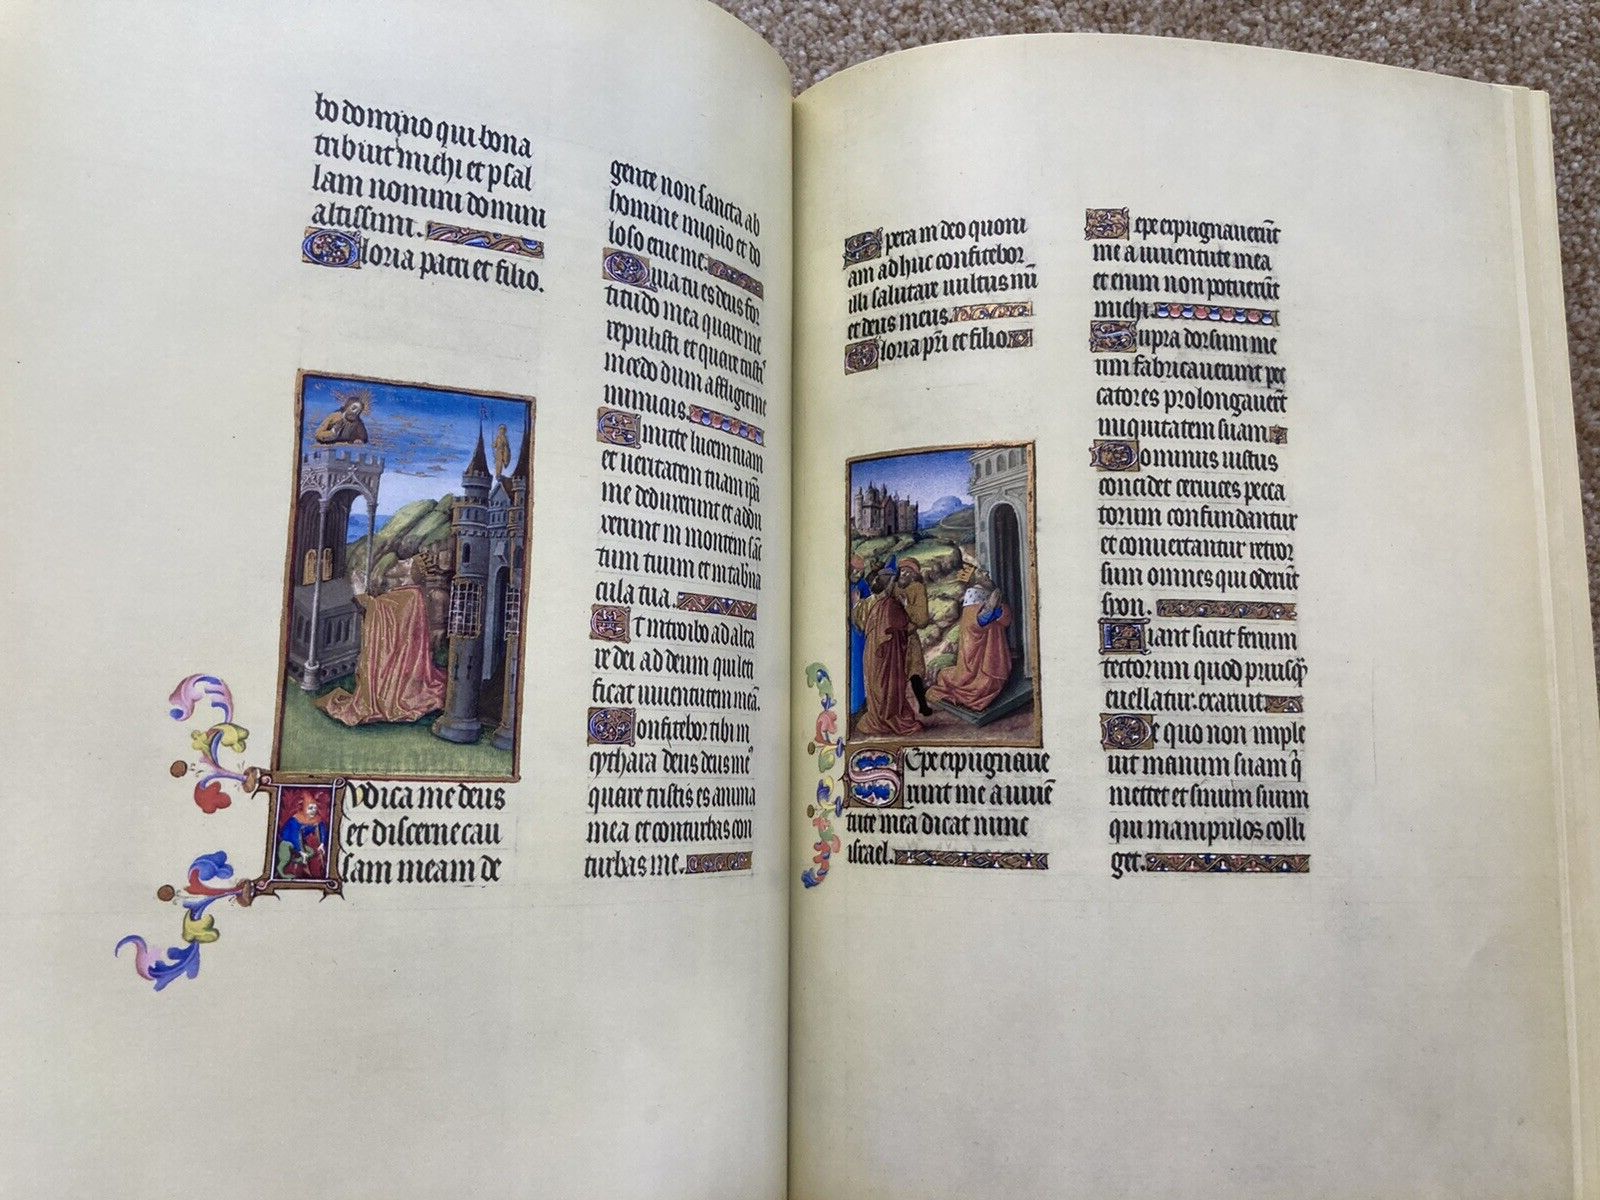 bo domino qui bona
tribuit michi et psal
lam nomini domini
altissimi.
Gloria patri et filio.
Iudica me deus
et discerne cau
sam meam de
gente non sancta ab
homine iniquo et do
loso erue me.
Quia tu es deus for
titudo mea quare me
repulisti et quare tristis
incedo dum affligit me
inimicus.
Emitte lucem tuam
et veritatem tuam ipā
me deduxerunt et addu
xerunt in montem sāc
tum tuum et in tab'na
cula tua.
Et introibo ad alta
re dei ad deum qui leti
ficat iuventutem meā.
Confitebor tibi in
cythara deus deus me9
quare tristis es anima
mea et conturbas con
turbas me.
Spera in deo quoni
am adhuc confitebor
illi salutare vultus mī
et deus meus.
Gloria pri et filio
Sepe expugnave
runt me a iuvē
tute mea dicat nunc
israel.
Sepe expugnaverūt
me a iuventute mea
et enim non potuerūt
michi.
Supra dorsum me
um fabricaverunt pec
catores prolongaverūt
iniquitatem suam
Dominus iustus
concidet cervices pecca
torum confundantur
et convertantur retror
sum omnes qui oderūt
syon.
Fiant sicut fenum
tectorum quod priusq̄
evellatur. exaruit
De quo non imple
vit manum suam q̄
mettet et sinum suum
qui manipulos colli
get.